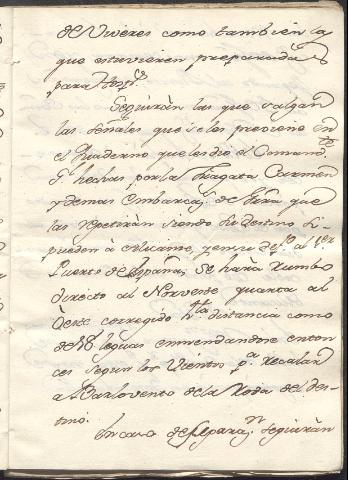 de Viveres como tambien la
que estuvieren preparada
para
Seguiràn las que salgan
las señales que se les previene en
el Quaderno que les dio el Comand.te
hechas por la Fragata Carmen
y demas Embarcaz.s de que
las repetiràn siendo su destino si
pueden à Alicante, y en su def.to al 1.er
Puerto de España, se harà rumbo
directo al Norueste quarta al
Oeste corregido h.ta distancia como
de leguas enmendandose enton
ces segun los Vientos p.a recalar
a Barlovento de la Rada de des-
tino.
En caso de Separaz.n seguiràn